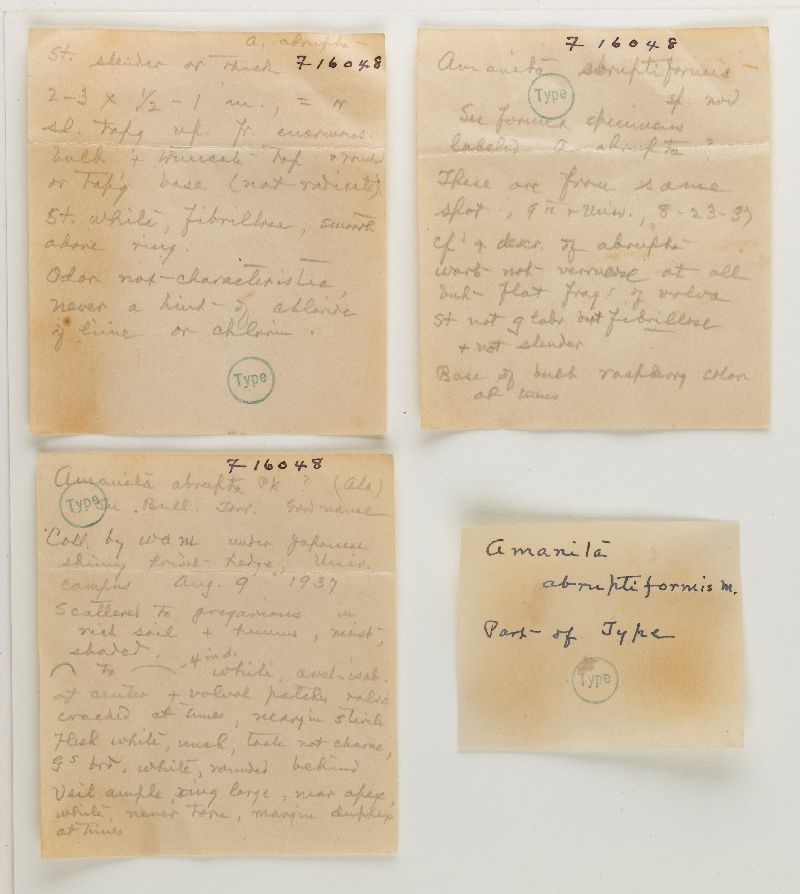 a. abrupta
St. slender or thick 716048
2-3 x 1/2 - 1 in., = or
sl. tap'g up. fr. enormous
bulb + truncate top + round
or tap'g base (not radicate),
St. white, fibrillose, smooth
above ring.
Odor not characteristic,
never a hint of chloride
of lime or chlorin.
Type
716048
Amanita abruptiformis
Type
sp. nov
See former specimens
labeled A. abrupta ?
These are from same
spot, 9th + Univ., 8-23-37
Cf'd descr. of abrupta
wart not verrucose at all
but flat frags of volva
St not glabr but fibrillose
+ not slender
Base of bulb raspberry color
at times
716048
Amanita abrupta Pk ? (Ala)
Type
Bull. Torr.
Coll. by WAM under Japanese
shiny privet-hedge, Univ.
campus Aug. 9 1937
Scattered to gregarious in
rich soil + humus, moist,
shaded.
to 4 ind. white, avel-isab.
at center + volval patches
cracked at times, margin sterile
Flesh white, much, taste not charac,
Gs brd. white, rounded behind
Veil ample, ring large, near apex,
white, never torn, margin duplex
at times
Amanita
abruptiformis m.
Part of Type
Type